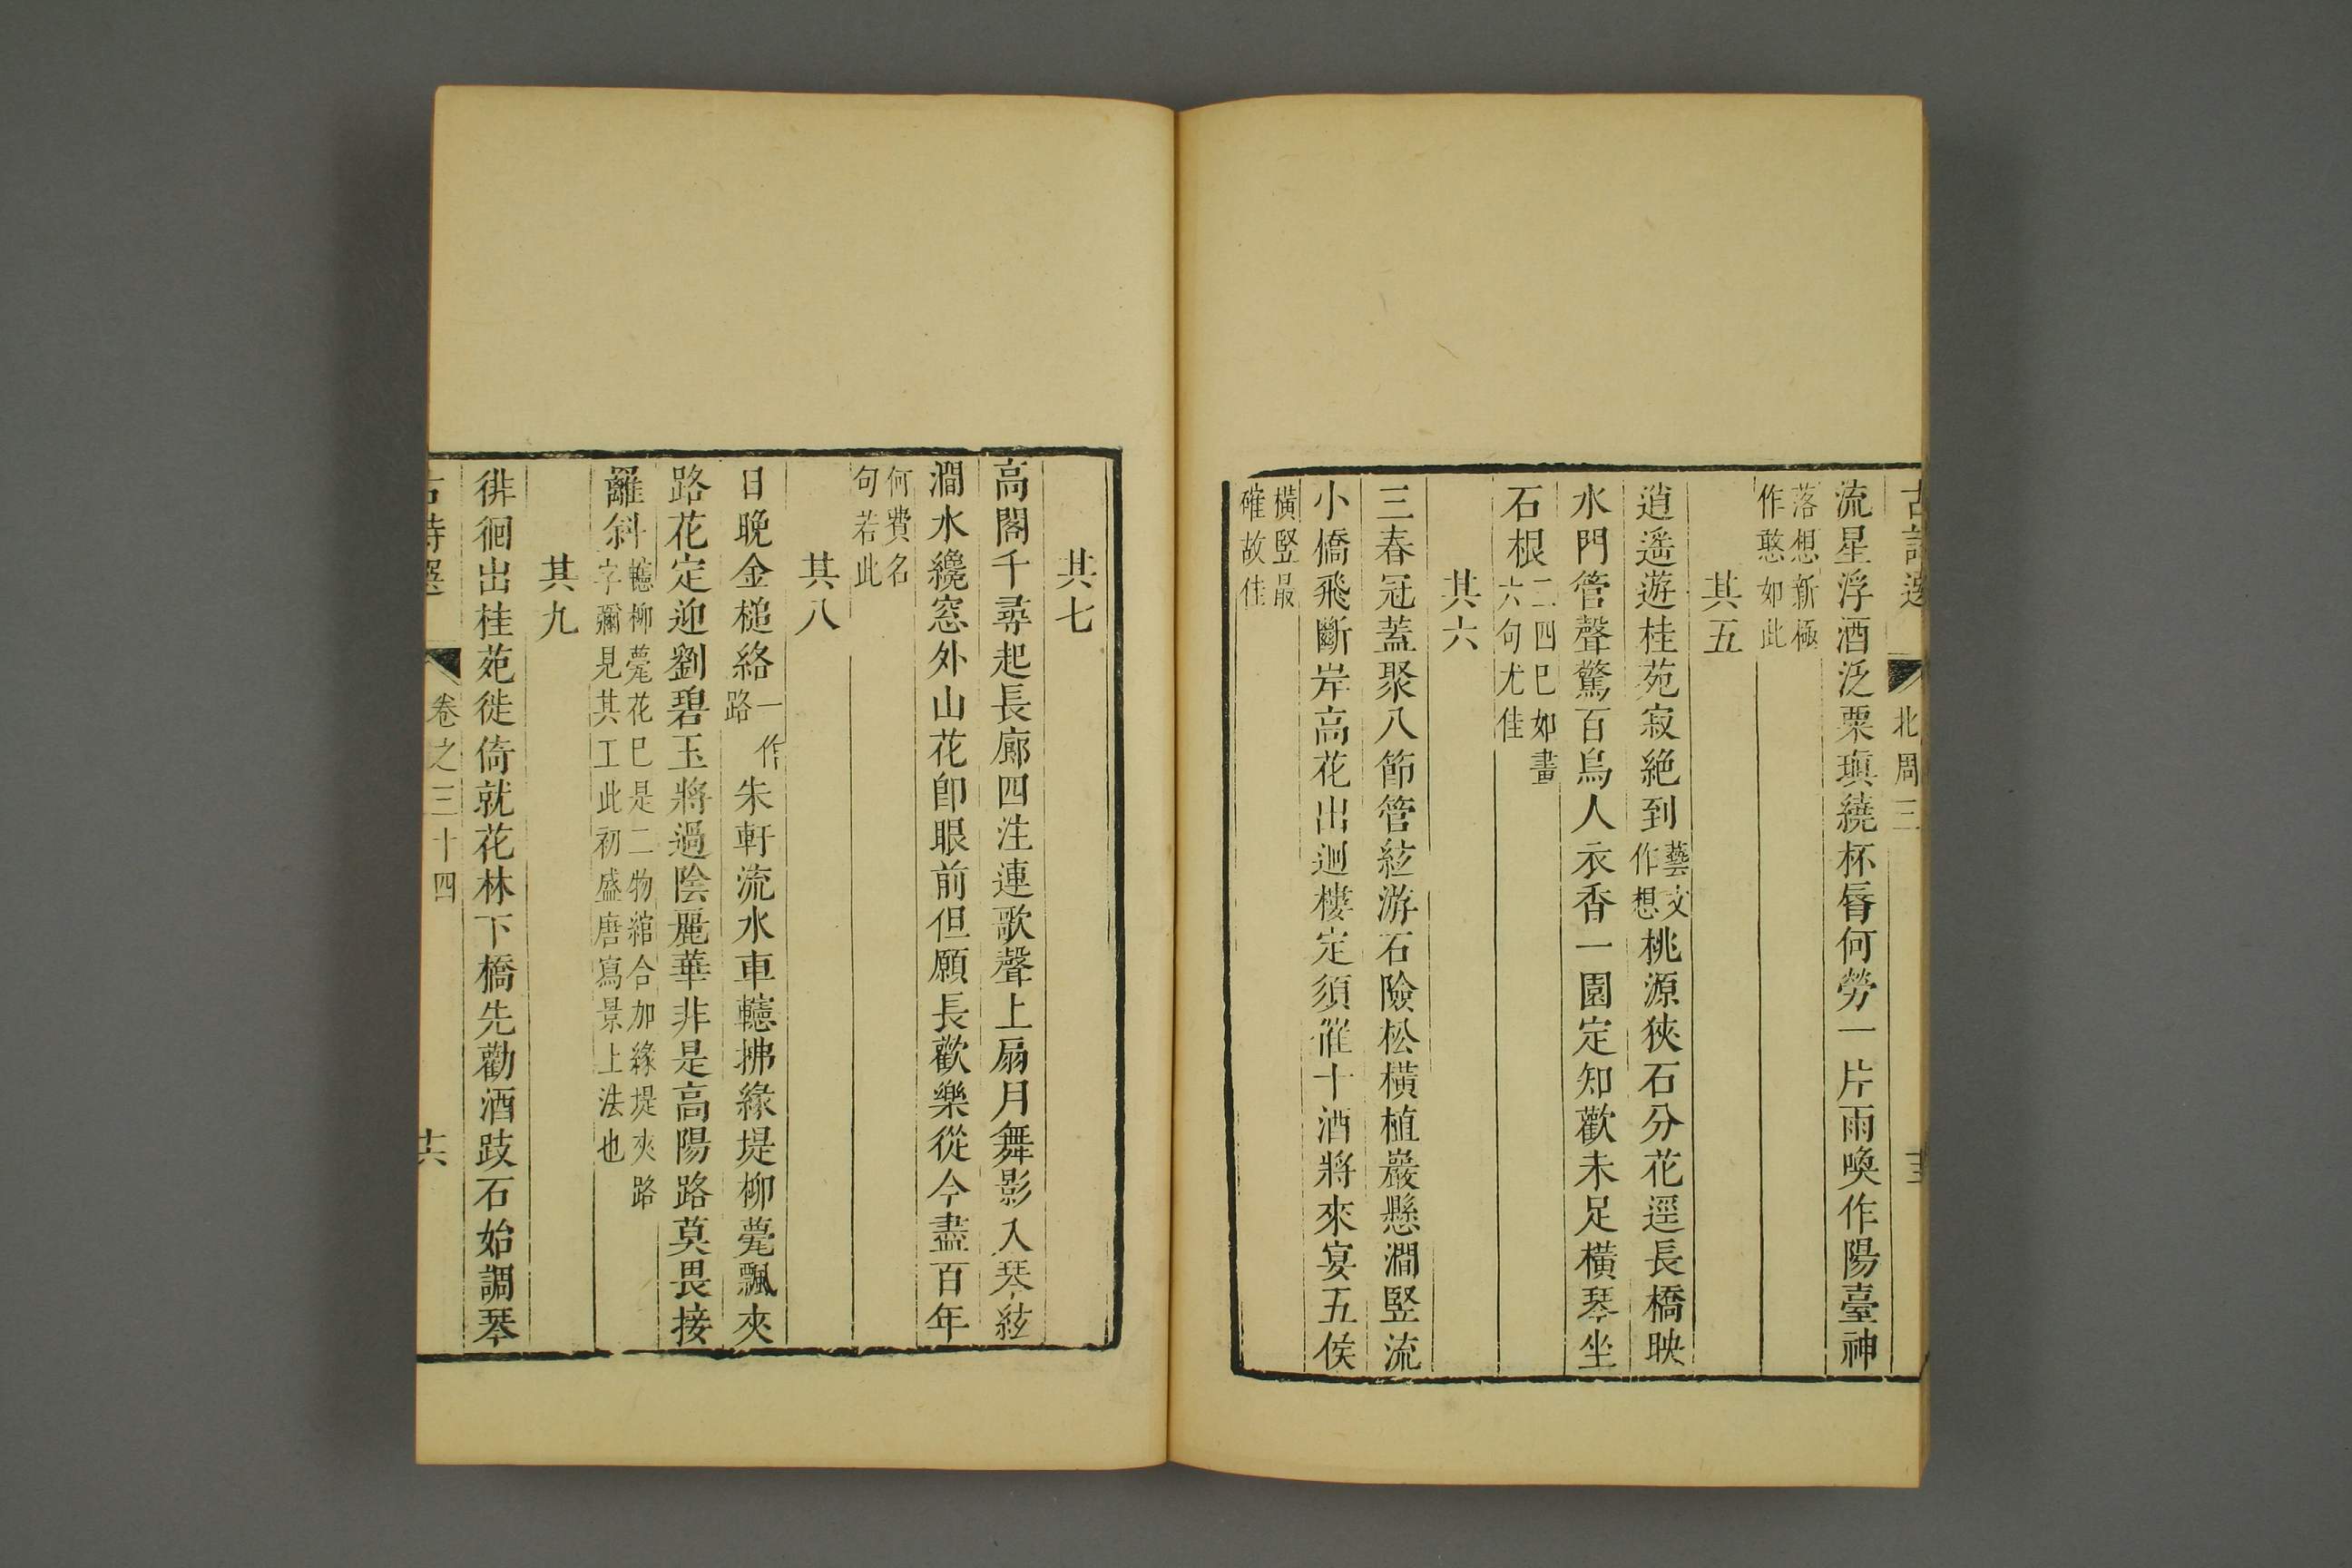 古詩選　北周三
流星浮酒泛粟瑱繞杯脣何勞一片雨喚作陽臺神
落想新極
作憨如此
其五
逍遥遊桂苑寂絶到
藝文
作想
桃源狹石分花逕長橋映
水門管聲驚百鳥人衣香一園定知歡未足橫琴坐
石根
二四巳如畫
六句尤佳
其六
三春冠蓋聚八節管絃游石險松橫植巖懸澗竪流
小僑飛斷岸高花出迥樓定須催十酒將來宴五侯
橫竪最
確故佳
其七
高閣千尋起長廊四注連歌聲上扇月舞影入琴絃
澗水纔窓外山花卽眼前但願長歡樂從今盡百年
何費名
句若此
其八
日晚金槌絡
一作
路
朱軒流水車轣拂緣堤柳甍飄夾
路花定迎劉碧玉將過陰麗華非是高陽路莫畏接
䍦斜
轣柳甍花巳是二物綰合加緣堤夾路
字彌見其工此初盛唐寫景上法也
其九
徘徊出桂苑徙倚就花林下橋先勸酒跂石始調琴
古詩選　卷之三十四　十六